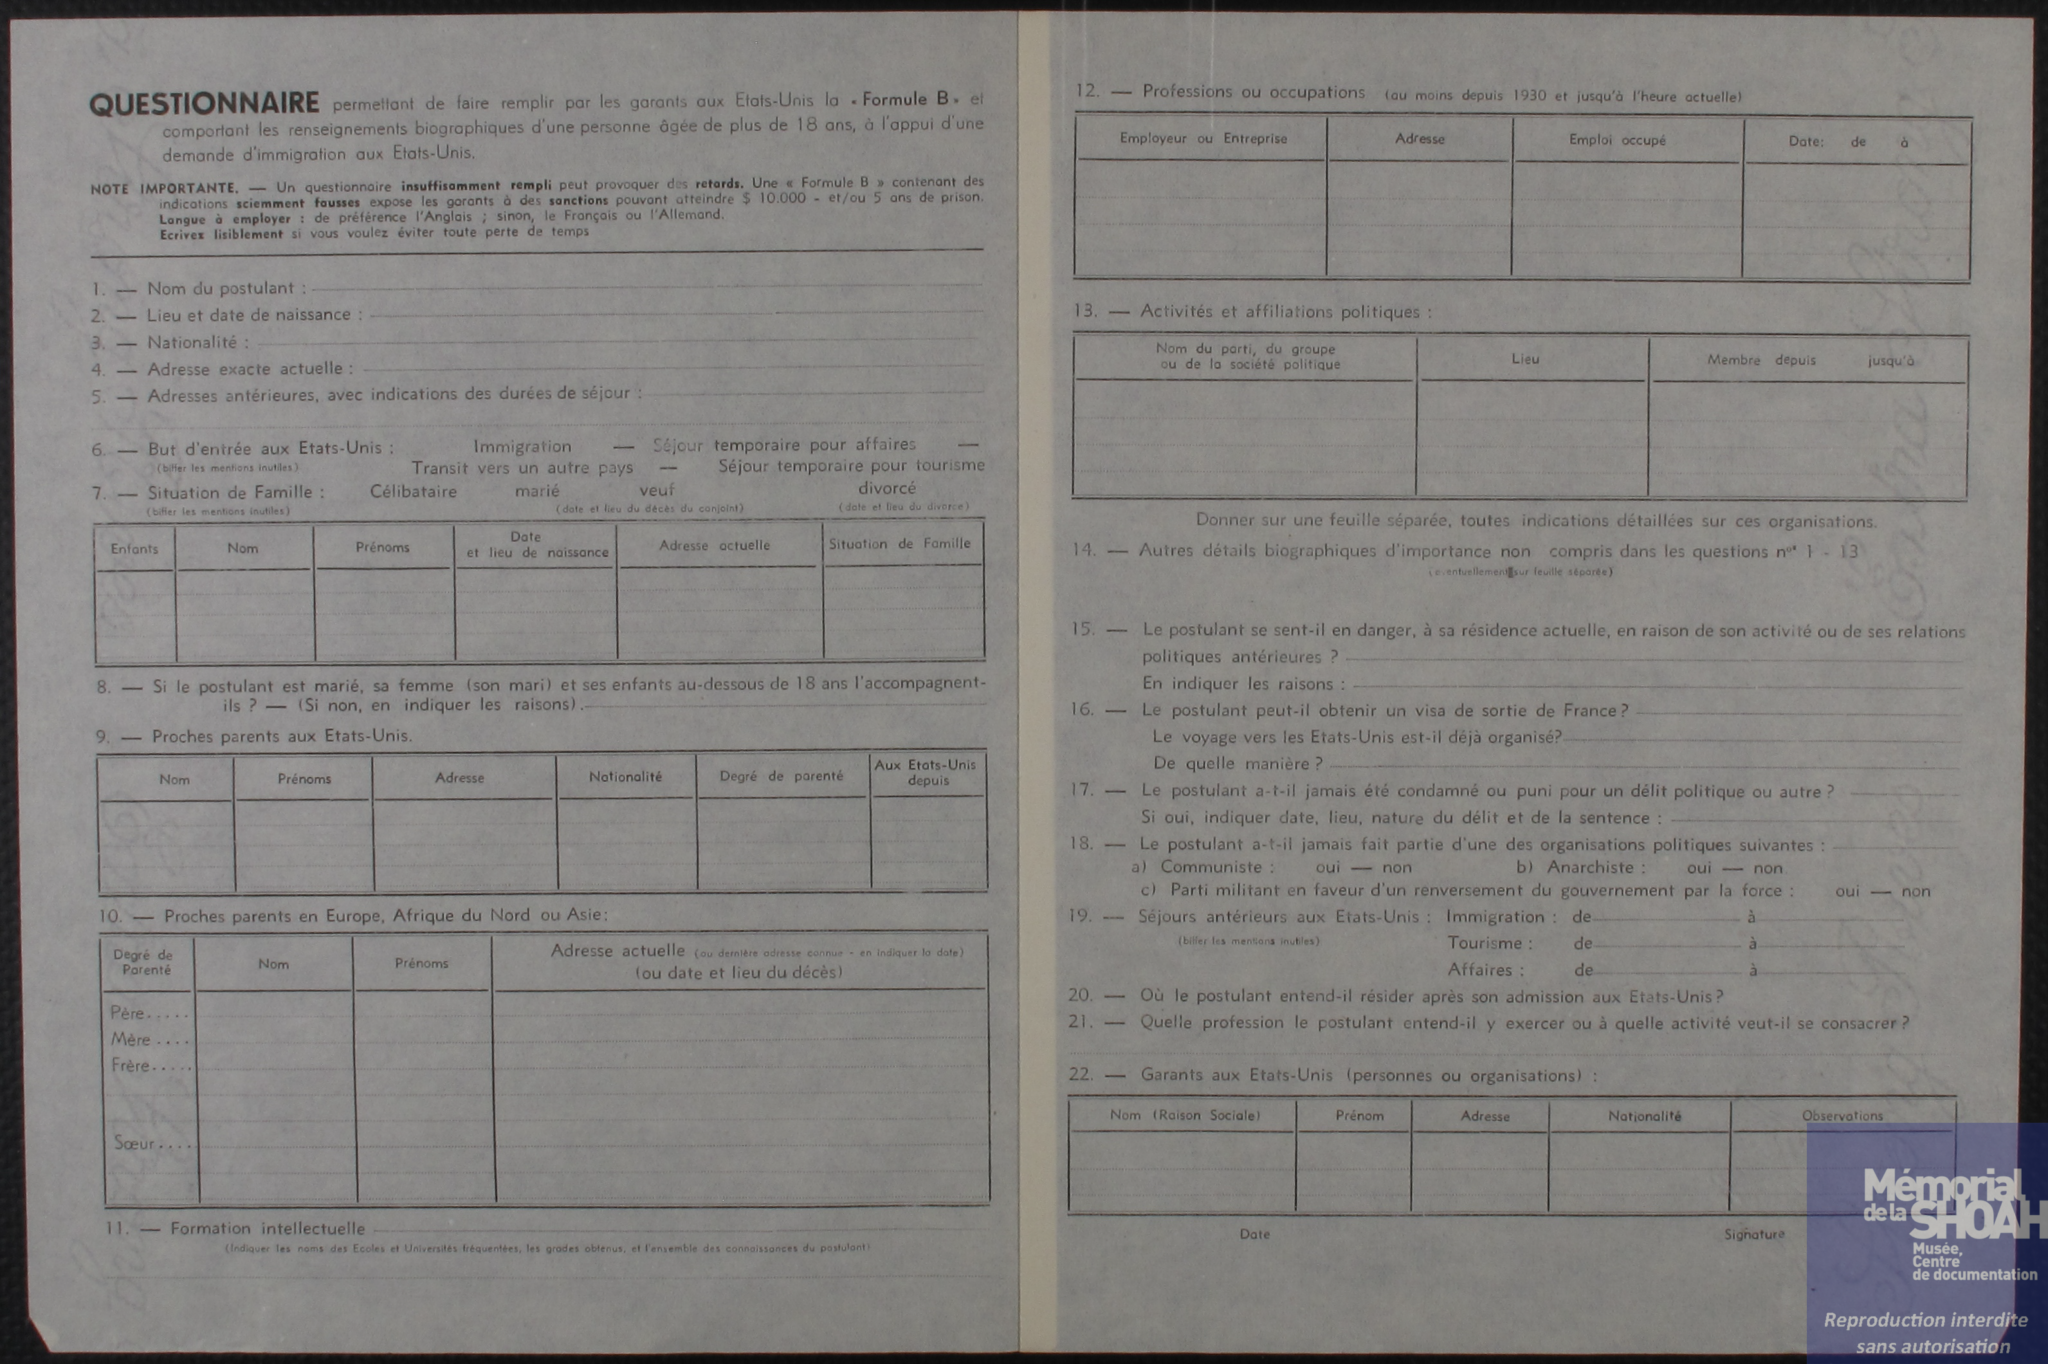 QUESTIONNAIRE permettant de faire remplir par les garants aux Etats-Unis la « Formule B » et
comportant les renseignements biographiques d'une personne âgée de plus de 18 ans, à l'appui d'une
demande d'immigration aux Etats-Unis.
NOTE IMPORTANTE. — Un questionnaire insuffisamment rempli peut provoquer des retards. Une « Formule B » contenant des
indications sciemment fausses expose les garants à des sanctions pouvant atteindre $ 10.000 - et/ou 5 ans de prison.
Langue à employer : de préférence l'Anglais ; sinon, le Français ou l'Allemand.
Ecrivez lisiblement si vous voulez éviter toute perte de temps
1. — Nom du postulant :
2. — Lieu et date de naissance :
3. — Nationalité :
4. — Adresse exacte actuelle :
5. — Adresses antérieures, avec indications des durées de séjour :
6. — But d'entrée aux Etats-Unis : Immigration — Séjour temporaire pour affaires —
(biffer les mentions inutiles) Transit vers un autre pays — Séjour temporaire pour tourisme
7. — Situation de Famille : Célibataire marié veuf divorcé
(biffer les mentions inutiles) (date et lieu du décès du conjoint) (date et lieu du divorce)
Enfants Nom Prénoms Date et lieu de naissance Adresse actuelle Situation de Famille
8. — Si le postulant est marié, sa femme (son mari) et ses enfants au-dessous de 18 ans l'accompagnent-
ils ? — (Si non, en indiquer les raisons).
9. — Proches parents aux Etats-Unis.
Nom Prénoms Adresse Nationalité Degré de parenté Aux Etats-Unis depuis
10. — Proches parents en Europe, Afrique du Nord ou Asie:
Degré de Parenté Nom Prénoms Adresse actuelle (ou dernière adresse connue - en indiquer la date)
(ou date et lieu du décès)
Père.....
Mère....
Frère.....
Sœur....
11. — Formation intellectuelle
(Indiquer les noms des Ecoles et Universités fréquentées, les grades obtenus, et l'ensemble des connaissances du postulant)
12. — Professions ou occupations (au moins depuis 1930 et jusqu'à l'heure actuelle)
Employeur ou Entreprise Adresse Emploi occupé Date: de à
13. — Activités et affiliations politiques :
Nom du parti, du groupe ou de la société politique Lieu Membre depuis jusqu'à
Donner sur une feuille séparée, toutes indications détaillées sur ces organisations.
14. — Autres détails biographiques d'importance non compris dans les questions nos 1 - 13
(éventuellement sur feuille séparée)
15. — Le postulant se sent-il en danger, à sa résidence actuelle, en raison de son activité ou de ses relations
politiques antérieures ?
En indiquer les raisons :
16. — Le postulant peut-il obtenir un visa de sortie de France?
Le voyage vers les Etats-Unis est-il déjà organisé?
De quelle manière ?
17. — Le postulant a-t-il jamais été condamné ou puni pour un délit politique ou autre ?
Si oui, indiquer date, lieu, nature du délit et de la sentence :
18. — Le postulant a-t-il jamais fait partie d'une des organisations politiques suivantes :
a) Communiste : oui — non b) Anarchiste : oui — non
c) Parti militant en faveur d'un renversement du gouvernement par la force : oui — non
19. — Séjours antérieurs aux Etats-Unis : Immigration : de à
(biffer les mentions inutiles) Tourisme : de à
Affaires : de à
20. — Où le postulant entend-il résider après son admission aux Etats-Unis?
21. — Quelle profession le postulant entend-il y exercer ou à quelle activité veut-il se consacrer ?
22. — Garants aux Etats-Unis (personnes ou organisations) :
Nom (Raison Sociale) Prénom Adresse Nationalité Observations
Date Signature
Mémorial
de la SHOAH
Musée,
Centre
de documentation
Reproduction interdite
sans autorisation